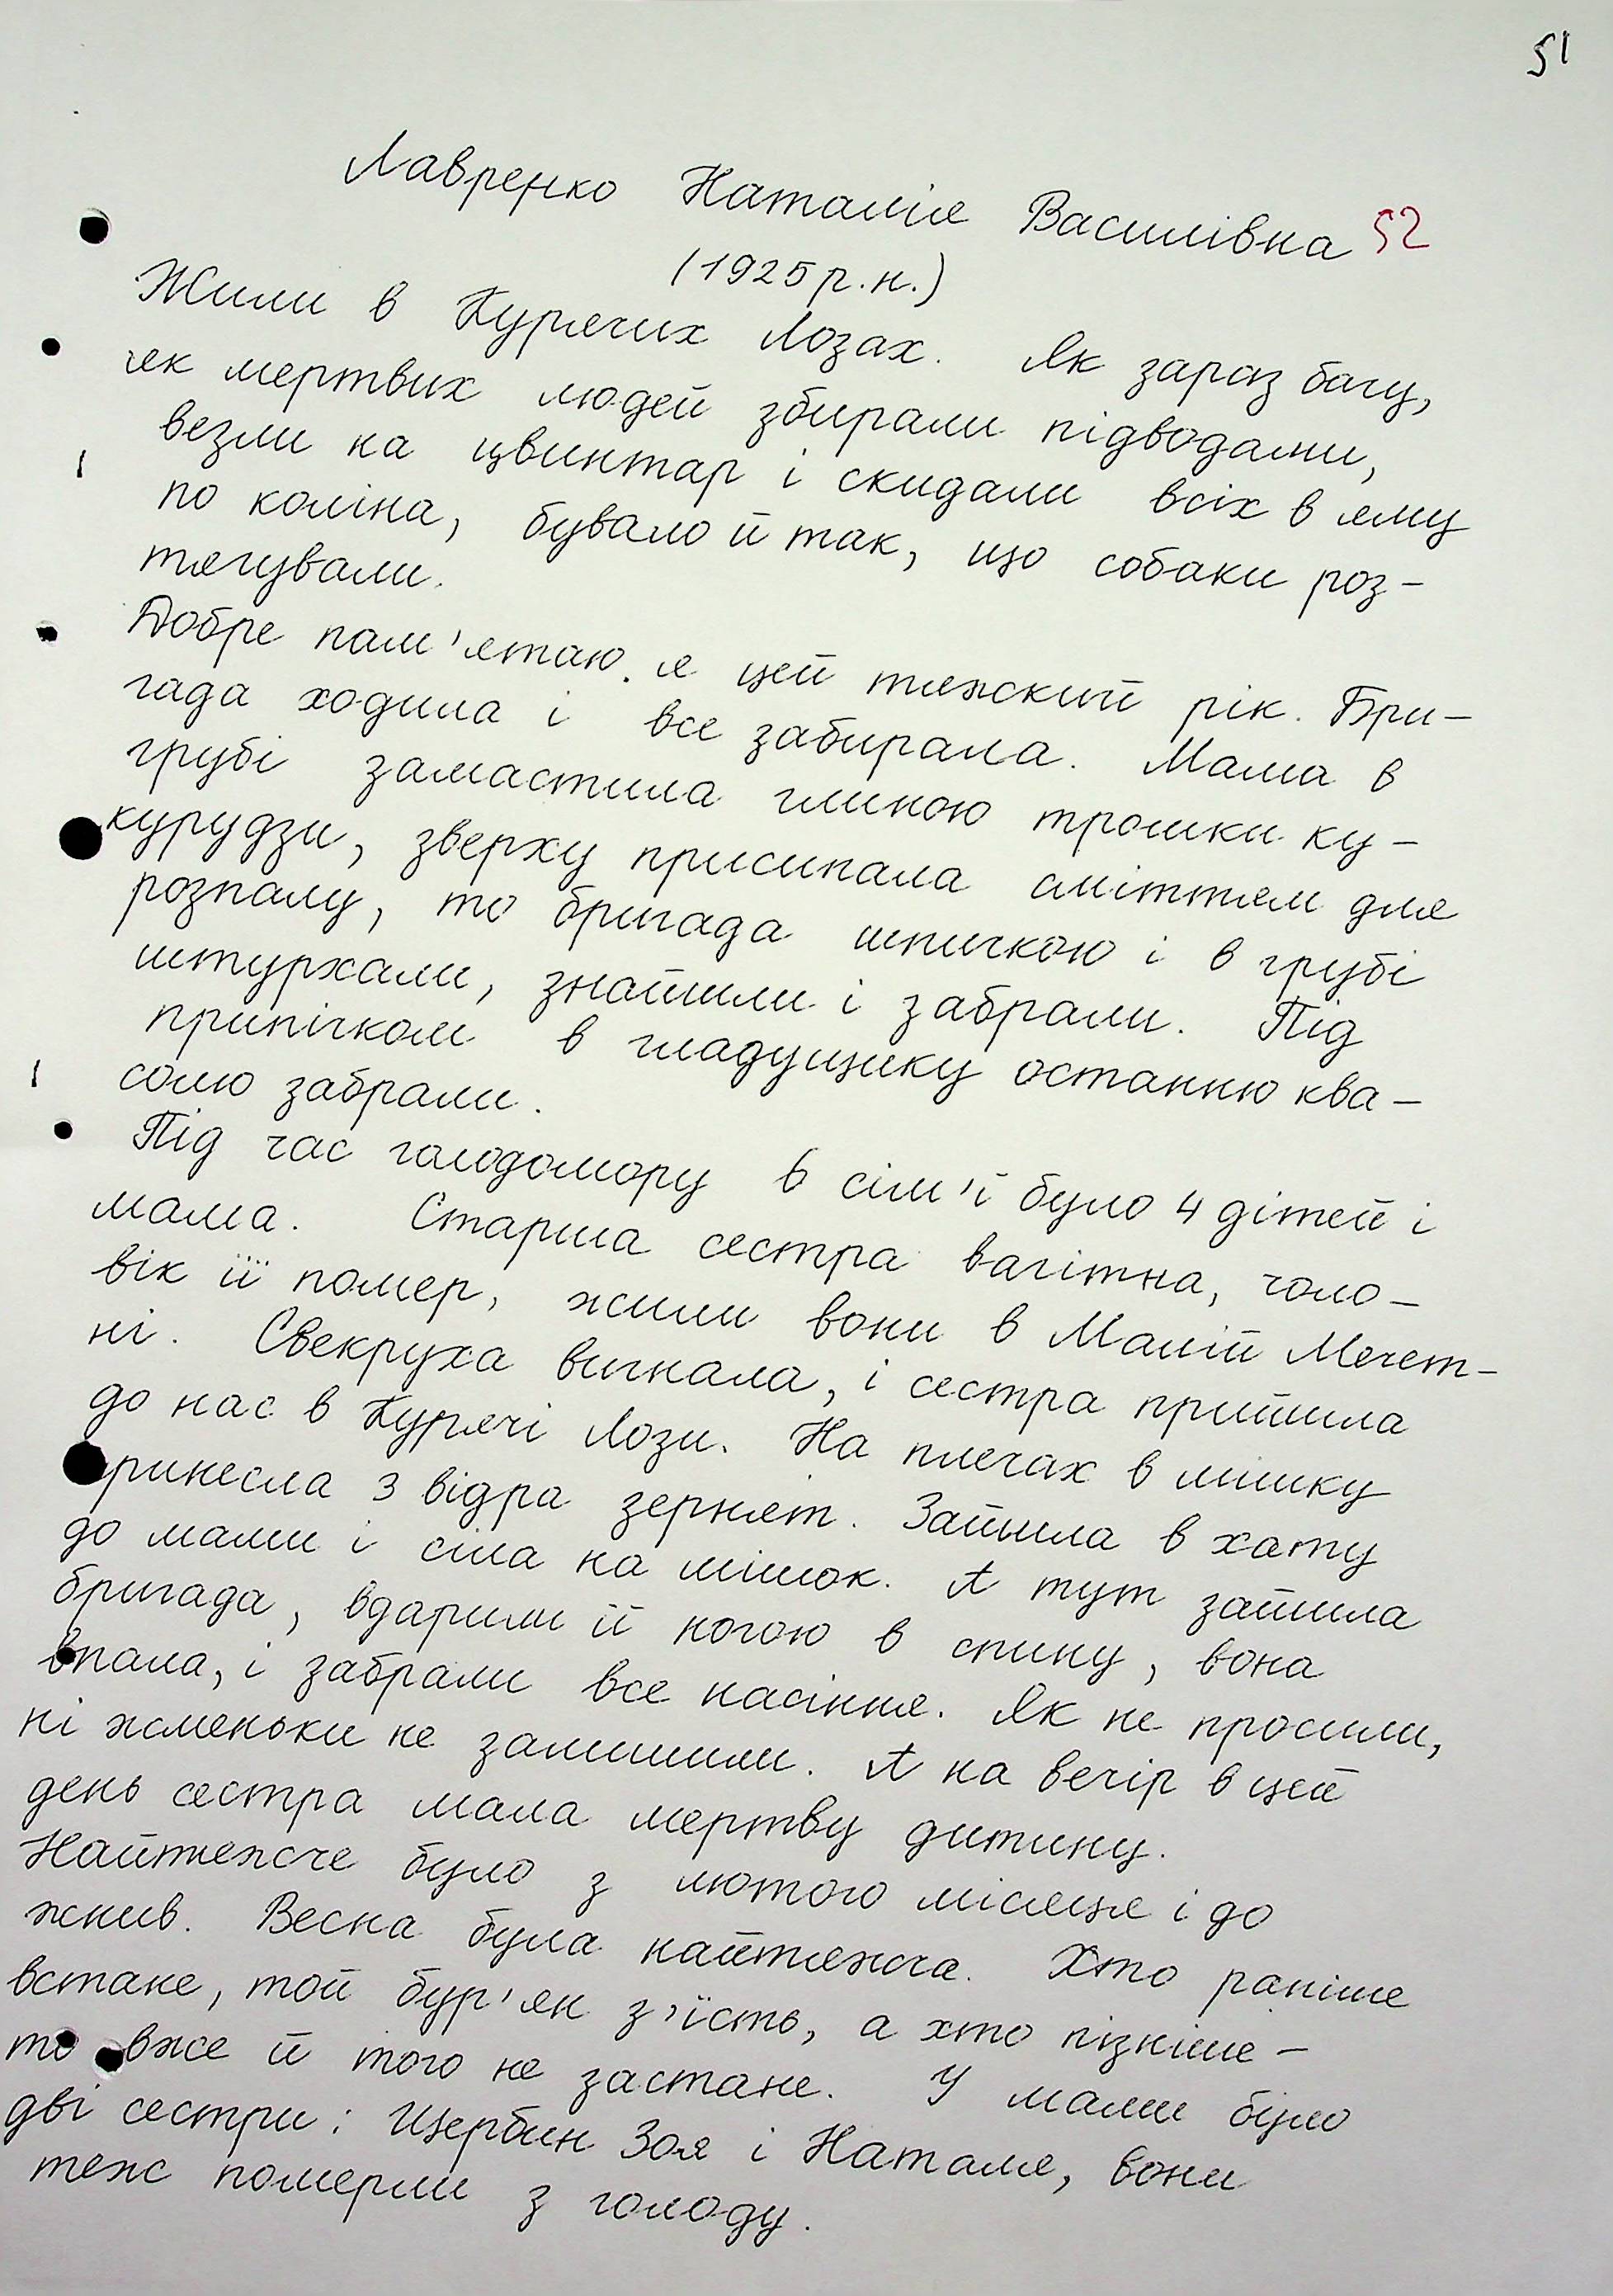 51
Лавренко Наталія Василівна 52
(1925 р.н.)
Жили в Курячих Лозах. Як зараз бачу,
як мертвих людей збирали підводами,
везли на цвинтар і скидали всіх в яму
по коліна, бувало й так, що собаки роз-
тягували.
Добре пам'ятаю я цей тяжкий рік. Бри-
гада ходила і все забирала. Мама в
грубі замастила глиною трошки ку-
курудзи, зверху присипала сміттям для
розпалу, то бригада шпичкою і в грубі
штурхали, знайшли і забрали. Під
припічком в гладущику останню ква-
солю забрали.
Під час голодомору в сім'ї було 4 дітей і
мама. Старша сестра вагітна, чоло-
вік її помер, жили вони в Малій Мечет-
ні. Свекруха вигнала, і сестра прийшла
до нас в Курячі Лози. На плечах в мішку
принесла з відра зернят. Зайшла в хату
до мами і сіла на мішок. А тут зайшла
бригада, вдарили її ногою в спину, вона
впала, і забрали все насіння. Як не просили,
ні жменьки не залишили. А на вечір в цей
день сестра мала мертву дитину.
Найтяжче було з лютого місяця і до
жнив. Весна була найтяжча. Хто раніше
встане, той бур'ян з'їсть, а хто пізніше -
то вже й того не застане. У мами було
дві сестри: Щербин Зоя і Наталя, вони
теж померли з голоду.